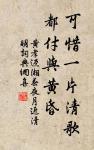 可惜一片清歌
都付與黃昏
黃孝邁湘春夜月近清
明詞典網喜